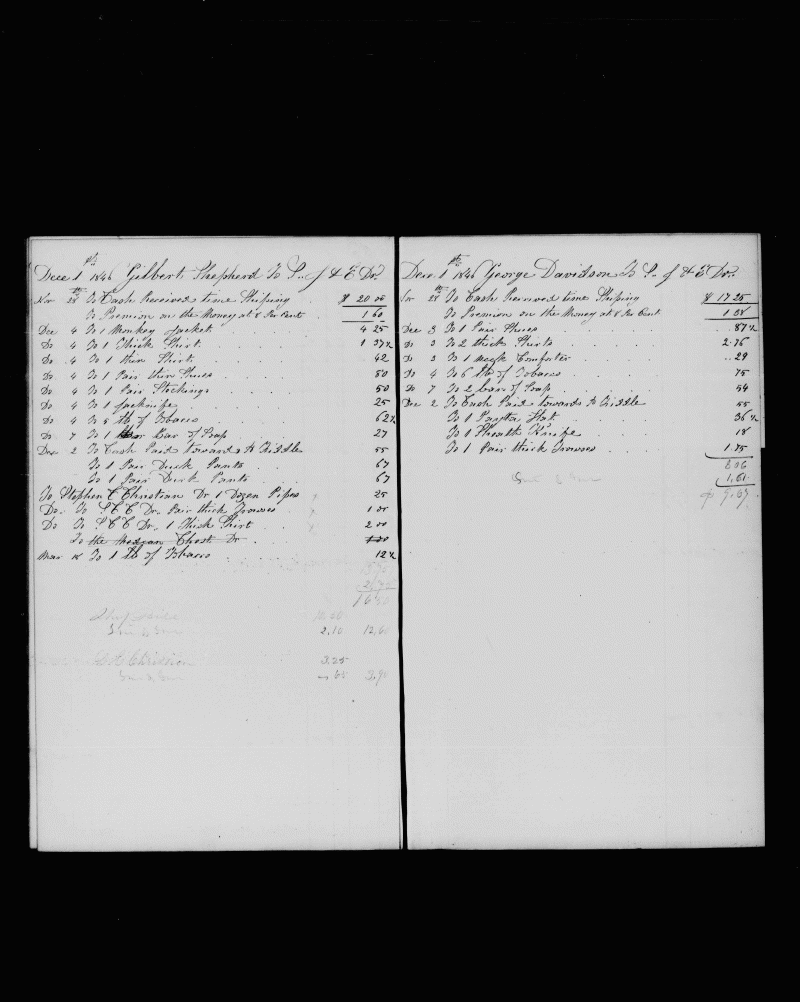 Dece 1th 1846 Gilbert Shepherd To S.. J & E Dr.
Nov 28th To Cash Received time Shiping $ 20 00
To Premion on the Money at 8 Per Cent 1 60
Dec 4 To 1 Monkey Jacket 4 25
Do 4 To 1 Thick Shirt 1 37½
Do 4 To 1 thin Shirt 42
Do 4 To 1 Pair thin Shues 80
Do 4 To 1 Pair Stockings 50
Do 4 To 1 Jacknife 25
Do 4 To 5 lb of Tobacco 62½
Do 7 To 1 Bar of Soap 27
Dec 2 To Cash Paid towards to Fiddle 55
To 1 Pair Duck Pants 67
To 1 Pair Duck Pants 67
To Stephen C Christian Dr 1 Dozen Pipes 25
Do. To S. C C Dr. Pair thick Trowses 1 00
Do To S. C C Dr. 1 Thick Shirt 2 00
To the Medson Chest Dr 1 00
Mar 18 To 1 lb of Tobacco 12½
2.10 12,60
Christian 3.25
65 3,90
Dece 1th 1846 George Davidson To S.. J & E Dr..
Nov 28th To Cash Received time Shiping $ 17 25
To Premion on the Money at 8 Per Cent 1 38
Dece 3 To 1 Pair Shues 87½
Do 3 To 2 thick Shirts 2.76
Do 3 To 1 neck Comforter 29
Do 4 To 6 lb of Tobacco 75
Do 7 To 2 bar of Soap 54
Dec 2 To Cash Paid towards to Fiddle 55
To 1 Paintea Hat 36½
To 1 Sheath Knife 18
To 1 Pair thick Trowses 1.75
8 06
1,61
$ 9.67